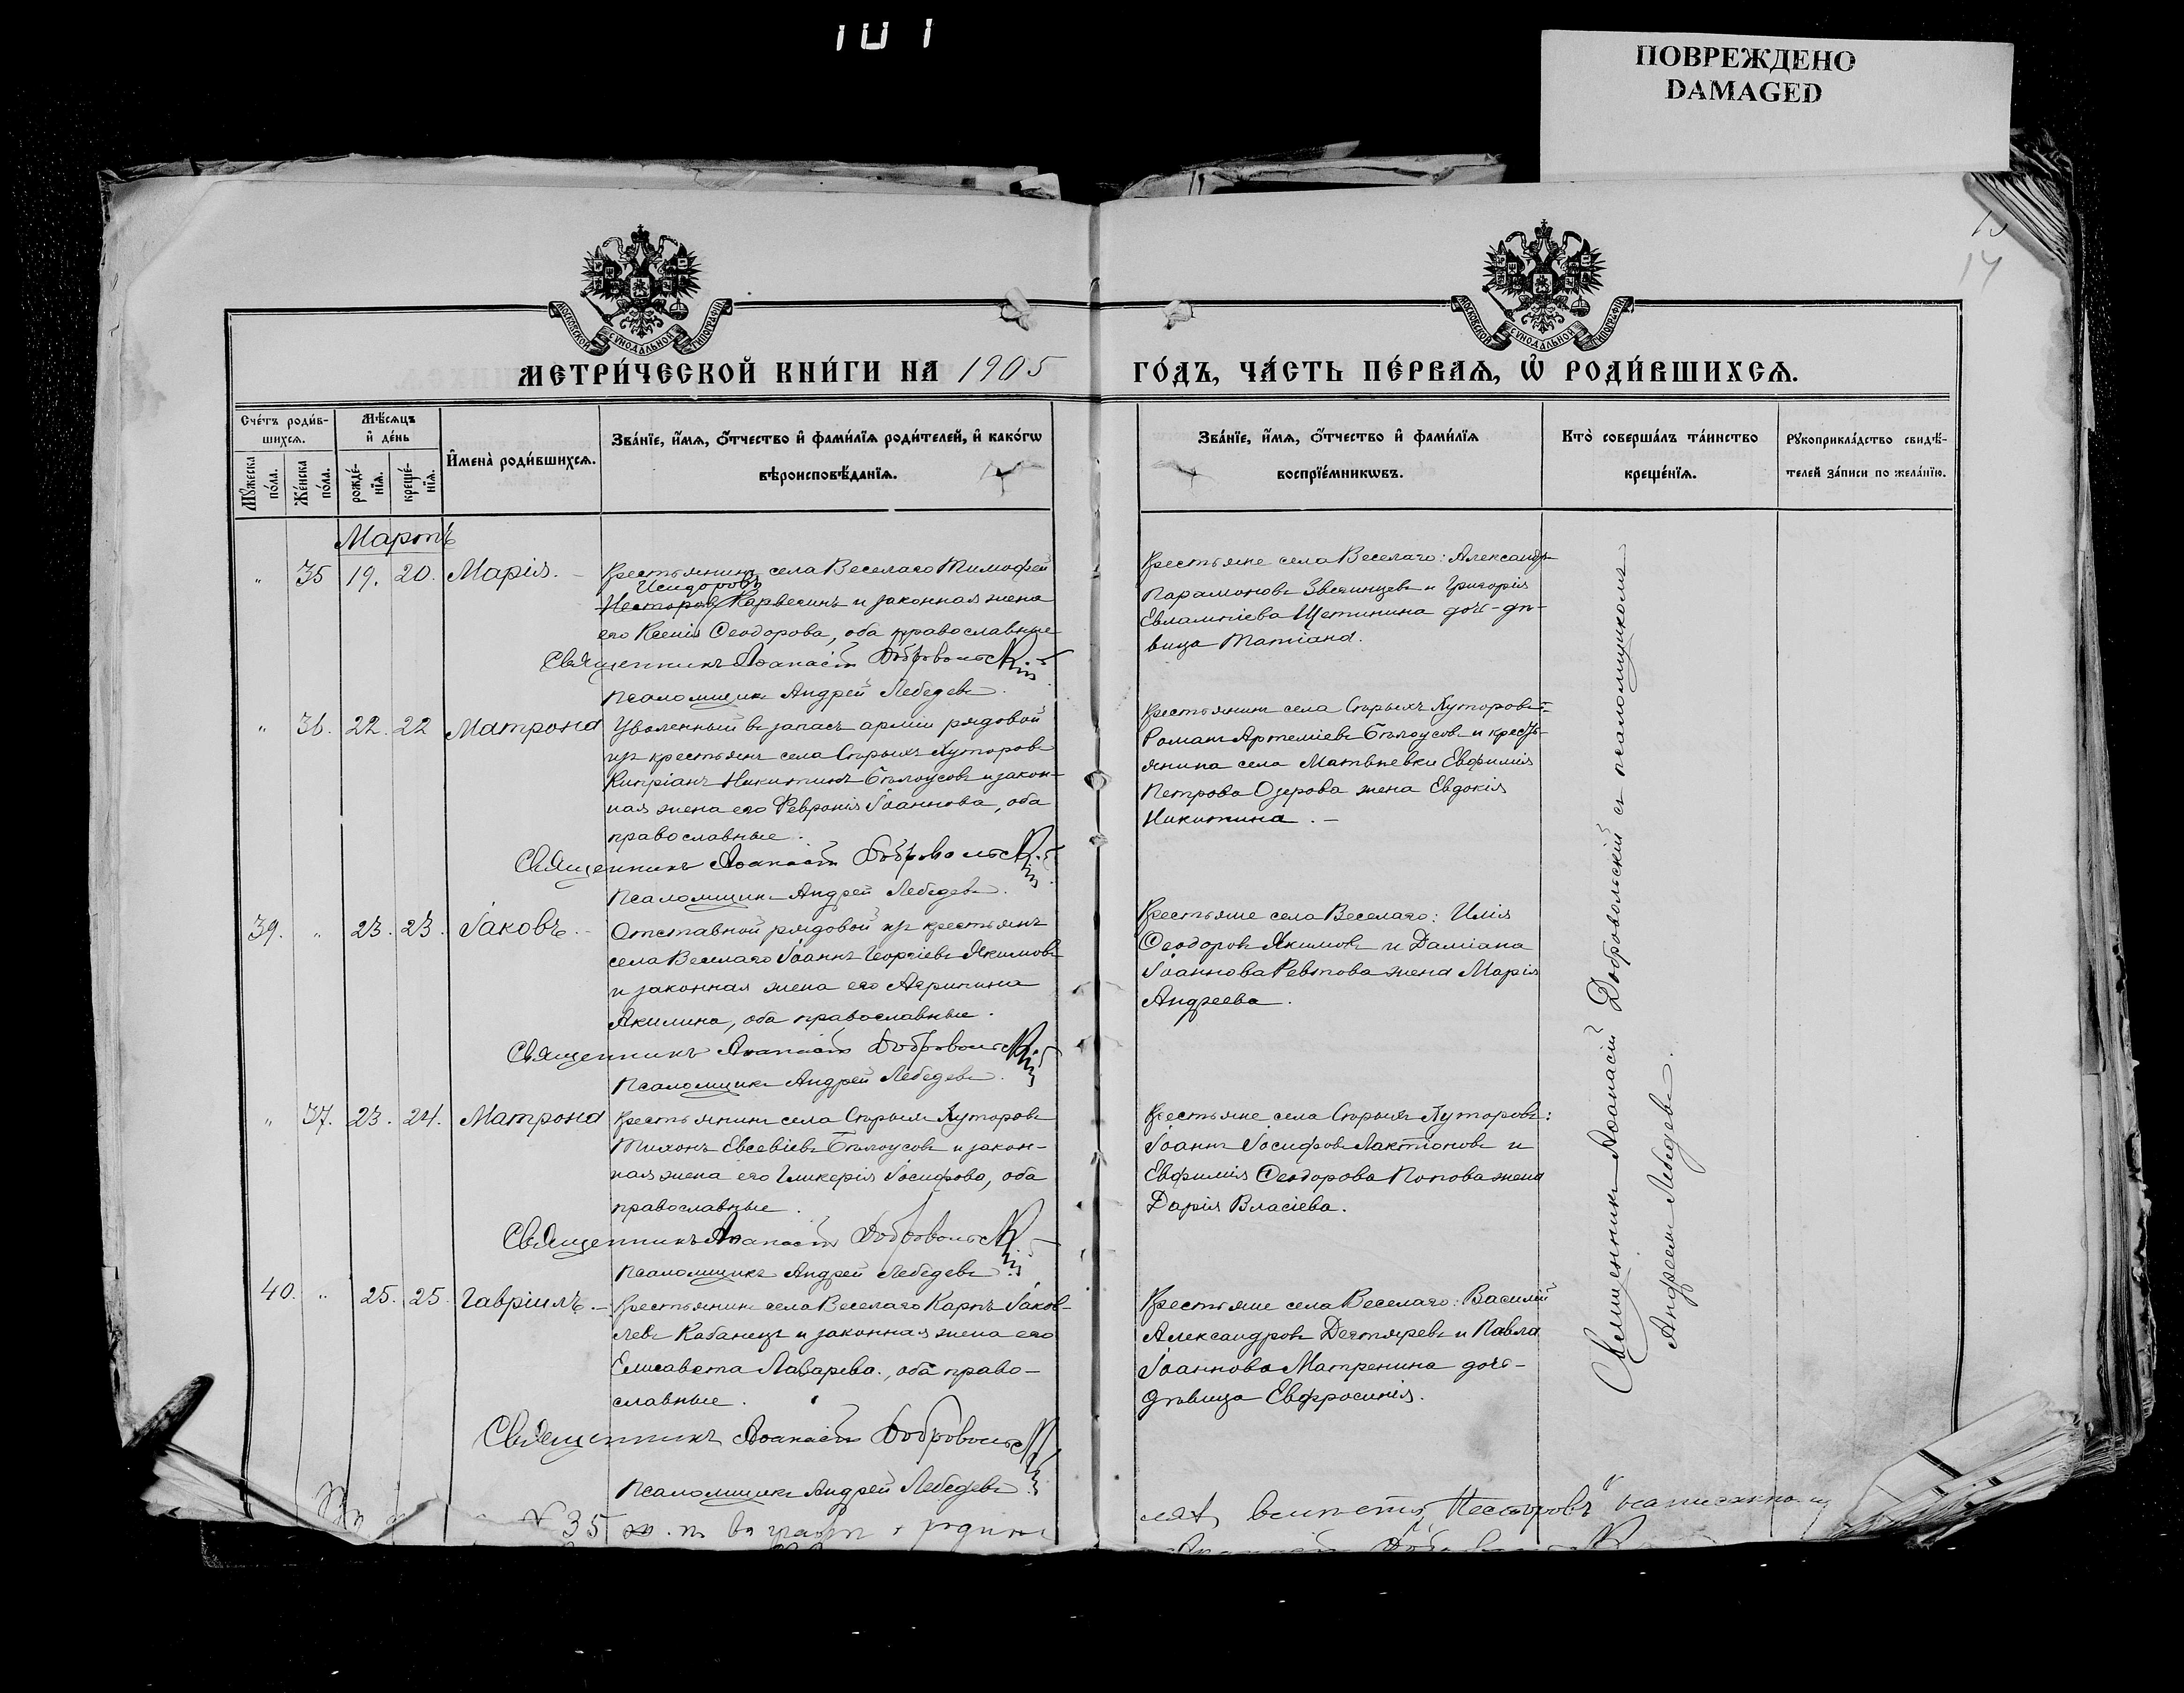 101
ПОВРЕЖДЕНО
DAMAGED
17
МОСКОВСКОЙ СѴНОДАЛЬНОЙ ТИПОГРАФІИ
МОСКОВСКОЙ СѴНОДАЛЬНОЙ ТИПОГРАФІИ
МЕТРИ́ЧЕСКОЙ КНИ́ГИ НА 1905 ГО́ДЪ, ЧА́СТЬ ПЕ́РВАѦ, Ѡ҆ РОДИ́ВШИХСѦ.
Сче́тъ роди́в-
шихсѧ.
Мꙋ́жеска по́ла.
Же́нска по́ла.
Мѣ́сѧцъ
и҆ де́нь
рожде́-
нїѧ.
креще́-
нїѧ.
И҆мена̀ роди́вшихсѧ.
Зва́нїе, и҆́мѧ, ѻ҆́тчество и҆ фами́лїѧ роди́телей, и҆ како́гѡ
вѣроисповѣ́данїѧ.
Зва́нїе, и҆́мѧ, ѻ҆́тчество и҆ фами́лїѧ
воспрїе́мникѡвъ.
Кто̀ соверша́лъ та́инство
креще́нїѧ.
Рꙋкоприкла́дство свидѣ́-
телей за́писи по жела́нїю.
Мартъ
" 35 19. 20. Марія.
Крестьянинъ села Веселаго Тимофей
Исидоровъ
Несторовъ Карвегинъ и законная жена
его Ксенія Ѳеодорова, оба православные
Священникъ Аѳанасій Добровольскій
Псаломщикъ Андрей Лебедевъ.
Крестьяне села Веселаго: Александръ
Парамоновъ Звегинцевъ и Григорія
Евлампіева Щетинина дочь-дѣ-
вица Татіана.
" 36. 22. 22 Матрона
Уволенный въ запасъ арміи рядовой
изъ крестьянъ села Старыхъ Хуторовъ
Кипріанъ Никитинъ Бѣлоусовъ и закон-
ная жена его Февронія Іоаннова, оба
православные.
Священникъ Аѳанасій Добровольскій
Псаломщикъ Андрей Лебедевъ.
Крестьянинъ села Старыхъ Хуторовъ
Романъ Артеміевъ Бѣлоусовъ и кресть-
янина села Матвѣевки Евфимія
Петрова Озерова жена Евдокія
Никитина.
39. " 23. 23. Іаковъ.
Отставной рядовой изъ крестьянъ
села Веселаго Іоаннъ Георгіевъ Якимовъ
и законная жена его Агрипина
Акилина, оба православные.
Священникъ Аѳанасій Добровольскій
Псаломщикъ Андрей Лебедевъ.
Крестьяне села Веселаго: Илія
Ѳеодоровъ Якимовъ и Даміана
Іоаннова Ревтова жена Марія
Андреева.
" 37. 23. 24. Матрона
Крестьянинъ села Старыхъ Хуторовъ
Тихонъ Евсевіевъ Бѣлоусовъ и закон-
ная жена его Гликерія Іосифова, оба
православные.
Священникъ Аѳанасій Добровольскій
Псаломщикъ Андрей Лебедевъ.
Крестьяне села Старыхъ Хуторовъ:
Іоаннъ Іосифовъ Лактіоновъ и
Евфимія Ѳеодорова Попова жена
Дарія Власіева.
40. " 25. 25. Гавріилъ.
Крестьянинъ села Веселаго Карпъ Іаков-
левъ Кабанецъ и законная жена его
Елисавета Лазарева, оба право-
славные.
Священникъ Аѳанасій Добровольскій
Псаломщикъ Андрей Лебедевъ.
Крестьяне села Веселаго: Василій
Александровъ Дегтяревъ и Павла
Іоаннова Матренина дочь-
дѣвица Евфросинія.
Священникъ Аѳанасій Добровольскій съ псаломщикомъ
Андреемъ Лебедевъ.
№ 35 ж. п. въ графѣ о родит
лях вмѣсто „Несторовъ" написанно